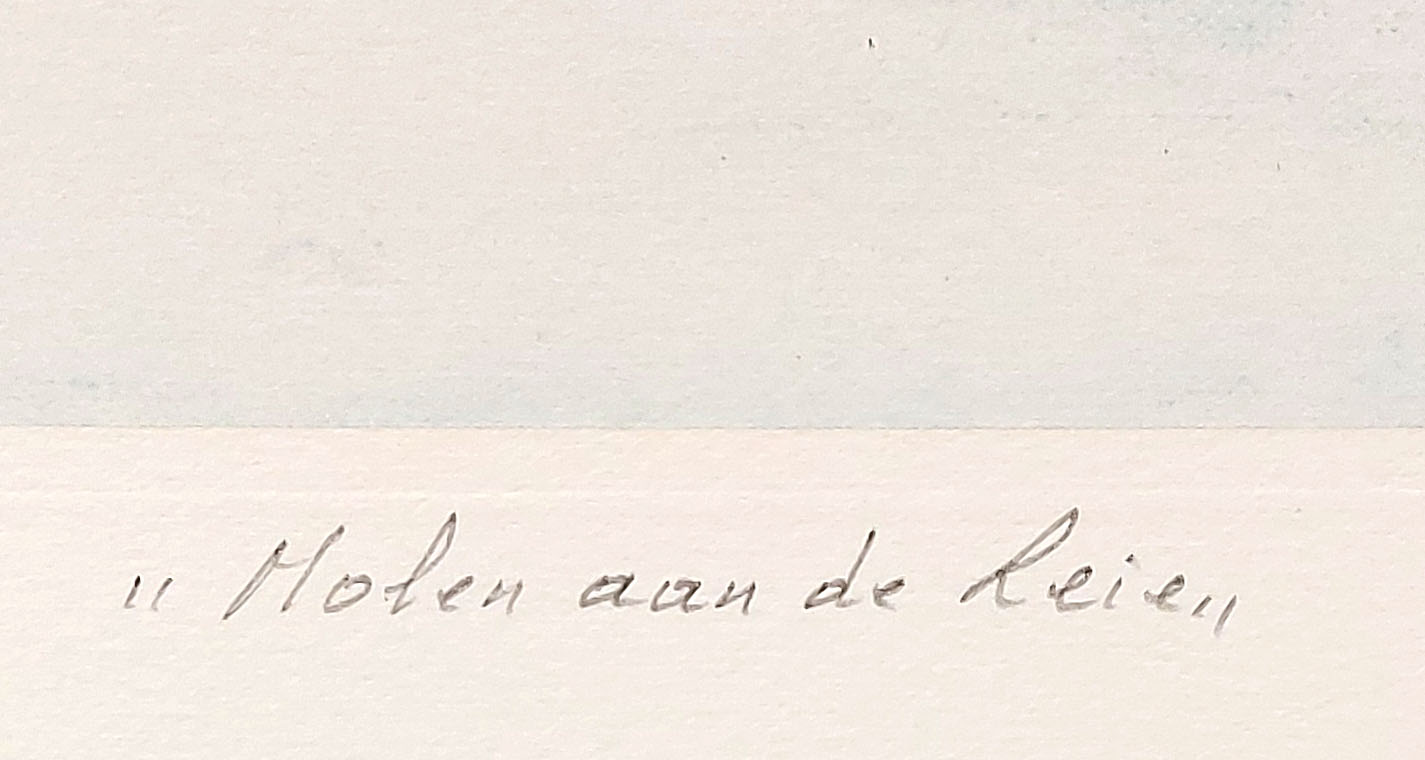 „ Molen aan de Leie „